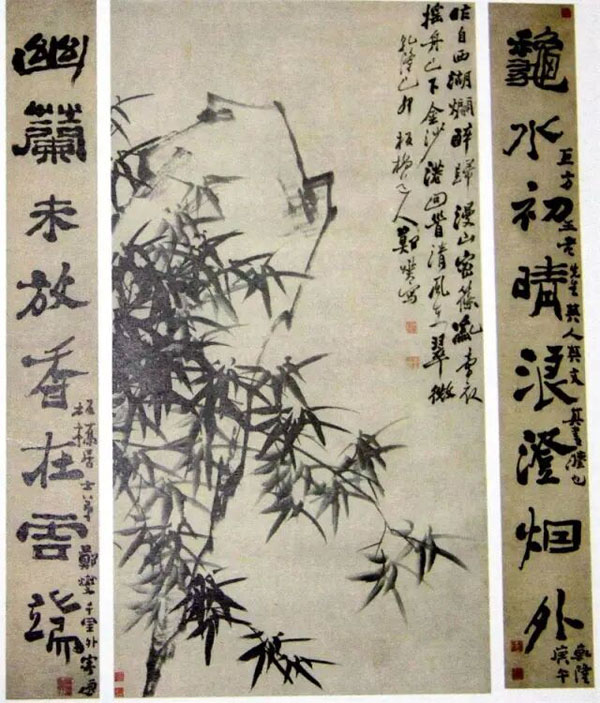 水初晴浪澄烟外
乾隆
庚午
昨自西湖爛醉歸漫山密篠亂牽衣
搖舟已下金沙港迴首清風在翠微
乾隆己卯板橋道人鄭燮寫
幽蘭未放香在雲端
板橋居士弟鄭燮千里外寄